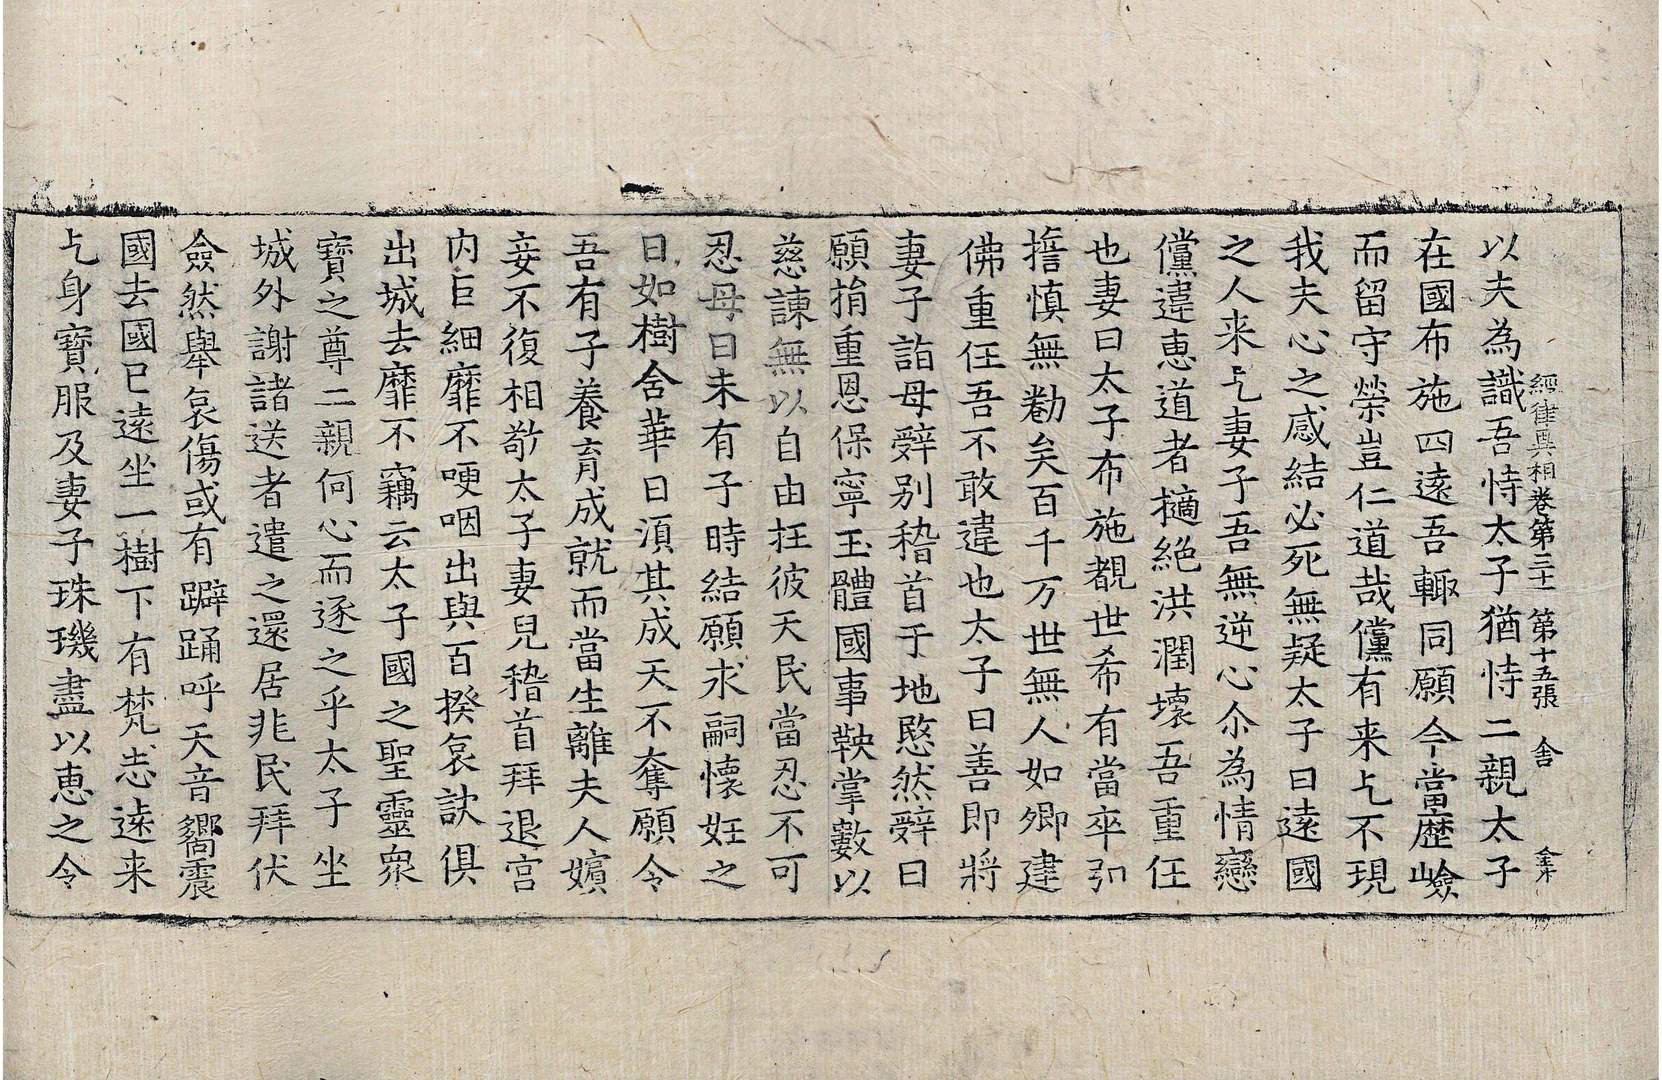 經律異相卷第三十一 第十五張 舍
以夫為識吾恃太子猶恃二親太子
在國布施四遠吾輙同願今當歷嶮
而留守榮豈仁道哉儻有来乞不現
我夫心之感結必死無疑太子曰遠國
之人来乞妻子吾無逆心尒為情戀
儻違恵道者擿絕洪潤壞吾重任
也妻曰太子布施覩世希有當卒弘
擔慎無勸矣百千万世無人如卿建
佛重任吾不敢違也太子曰善即將
妻子詣母辝別稽首于地愍然辝曰
願捐重恩保寧玉體國事鞅掌數以
慈諫無以自由抂彼天民當忍不可
忍母曰未有子時結願求嗣懷妊之
日如樹舍華日湏其成天不奪願令
吾有子養育成就而當生離夫人嬪
妾不復相敬太子妻兒稽首拜退宮
内巨細靡不哽咽出與百揆哀訣俱
出城去靡不竊云太子國之聖靈眾
寶之尊二親何心而逐之乎太子坐
城外謝諸送者遣之還居兆民拜伏
僉然舉哀傷或有躃踊呼天音嚮震
國去國已遠坐一樹下有梵志遠来
乞身寶服及妻子珠璣盡以恵之令